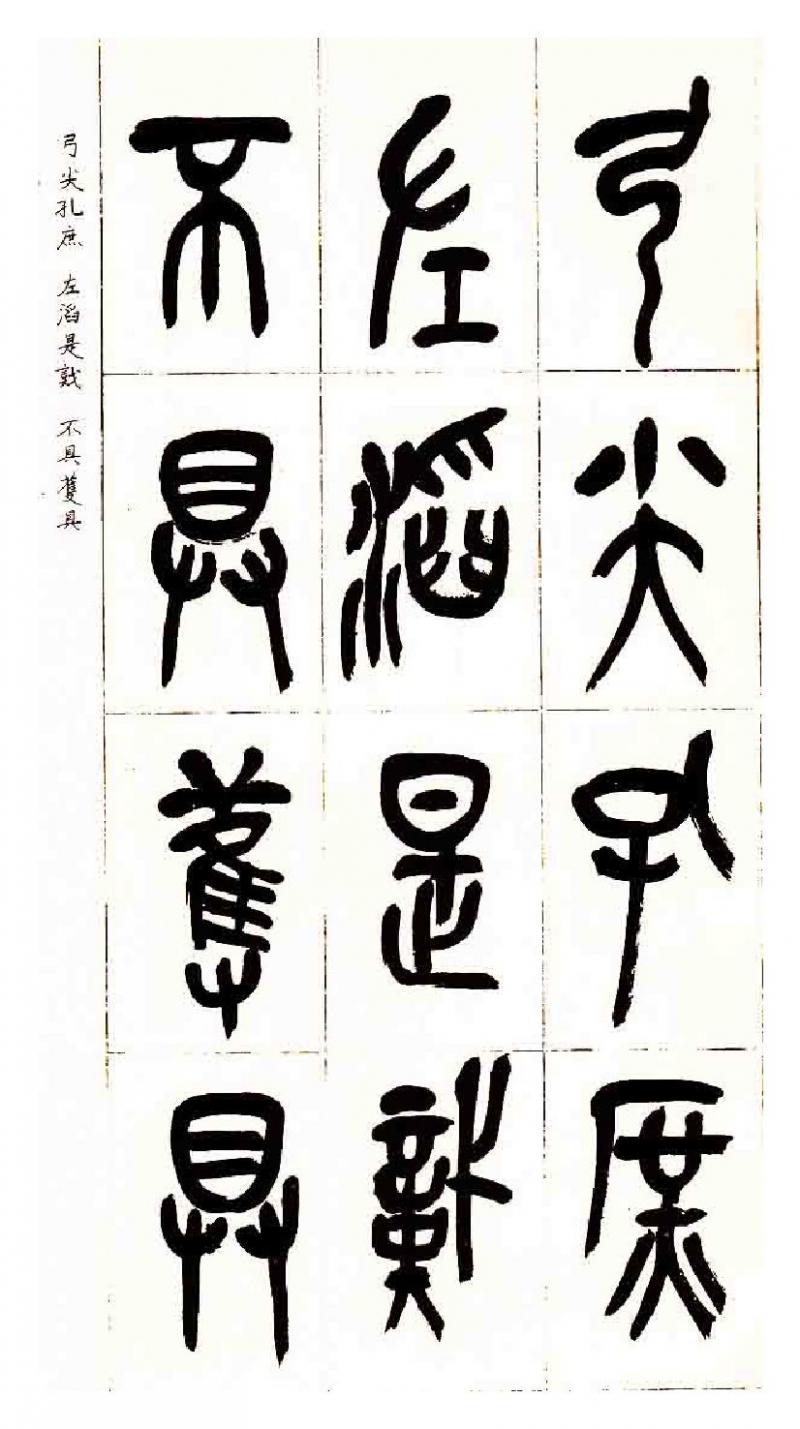 弓尖孔庶
左滔是戠
不具蒦具
弓尖孔庶 左滔是戠 不具蒦具